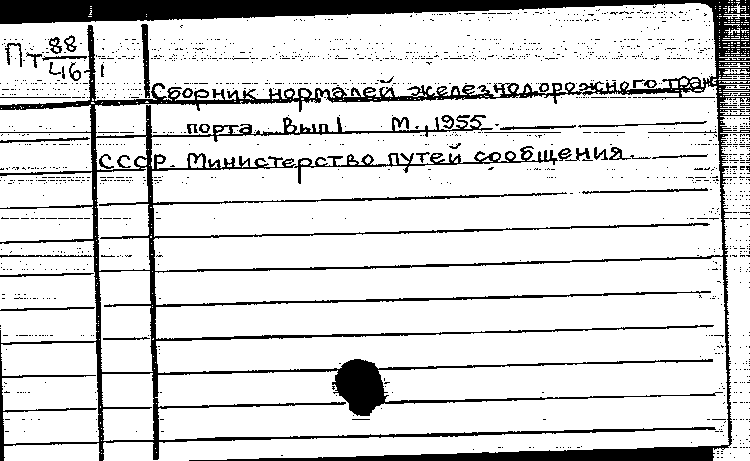 Пт 88
46-1
Сборник нормалей железнодорожного транс
порта. Вып 1 М., 1955.
СССР. Министерство путей сообщения.